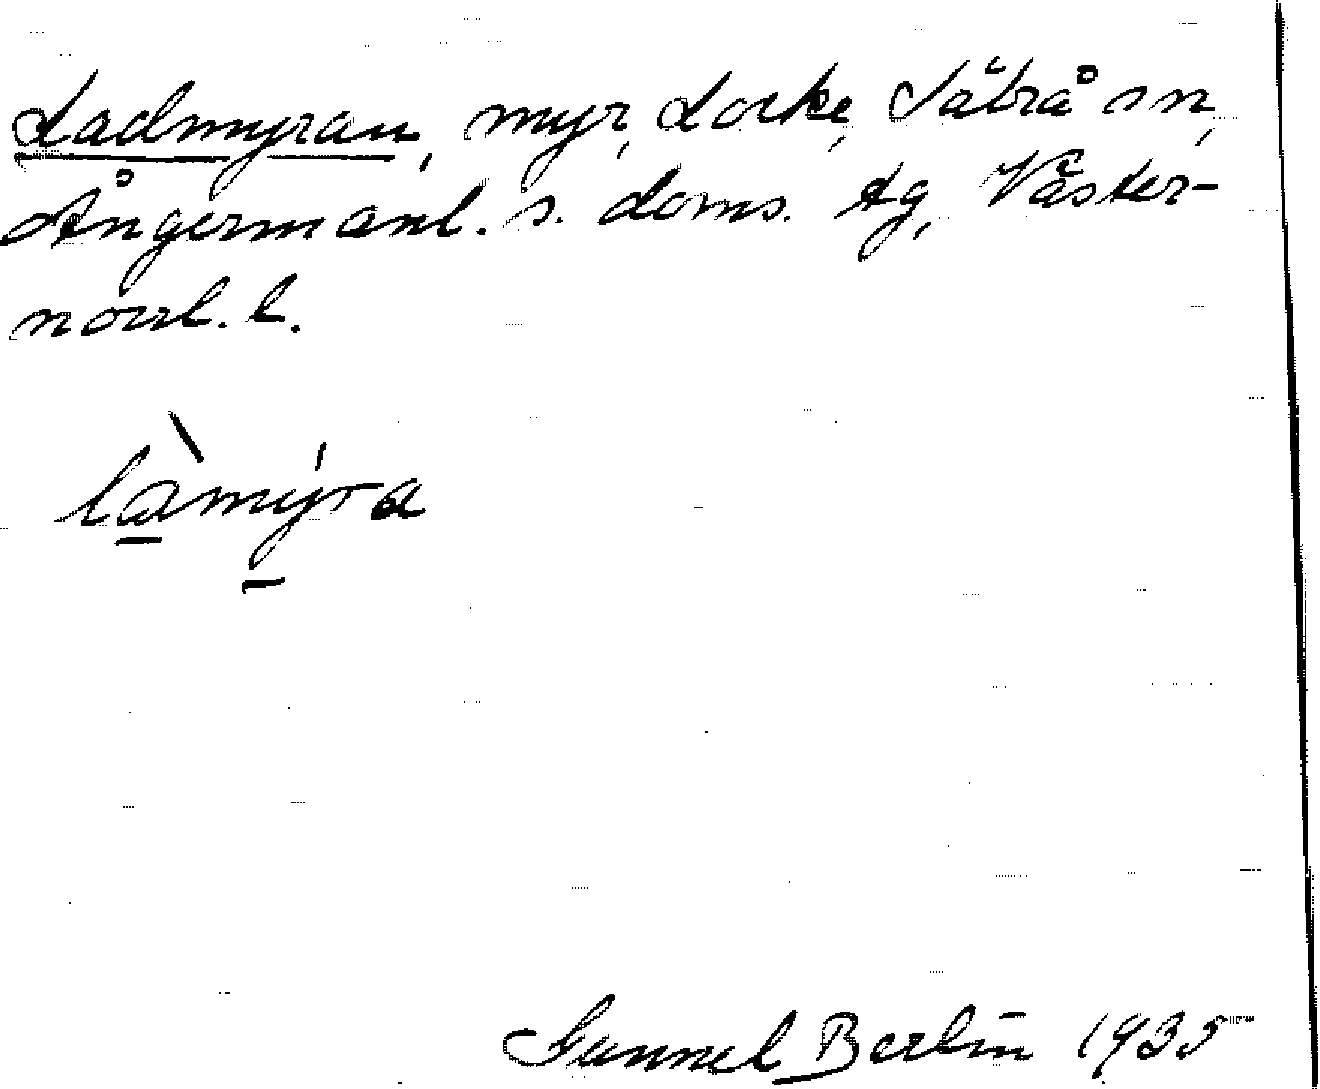 Ladmyran, myr, Locke, Säbrå sn,
Ångermanl. s. doms. tg, Väster-
norrl. l.
làmýra
Gunnel Berlin 1935